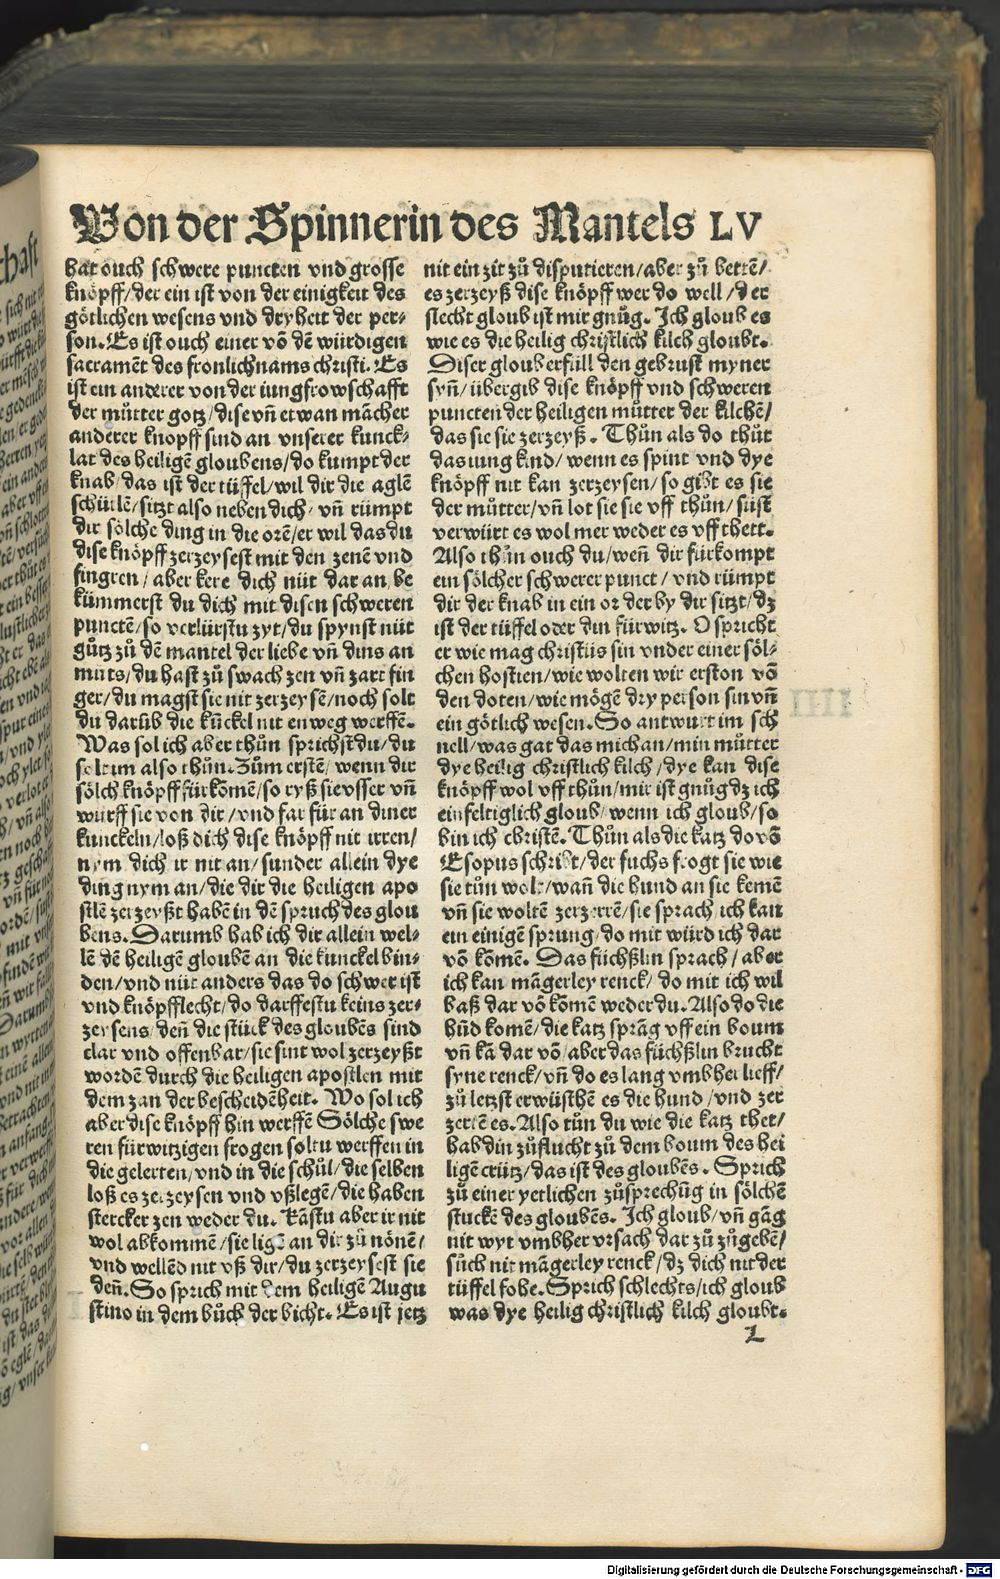 Von der Spinnerin des Mantels LV
hat ouch schwere puncten vnd grosse
knöpff/der ein ist von der einigkeit des
götlichen wesens vnd dryheit der per-
son. Es ist ouch einer võ dẽ würdigen
sacramẽt des fronlichnams christi. Es
ist ein anderer von der iungfrowschafft
der můtter gotz/dise vñ etwan mãcher
anderer knopff sind an vnserer kunck-
lat des heiligẽ gloubens/do kumpt der
knab/das ist der tüffel/wil dir die aglẽ
schütlẽ/sitzt also neben dich/vñ rümpt
dir sölche ding in die orẽ/er wil das du
dise knöpff zerzeysest mit den zenẽ vnd
fingren/aber kere dich nüt dar an/be
kümmerst du dich mit disen schweren
punctẽ/so verlürstu zyt/du spynst nüt
gůtz zů dẽ mantel der liebe vñ dins an
muts/du hast zů swach zen vñ zart fin
ger/du magst sie nit zerzeysẽ/noch solt
du darũb die kũckel nit enweg werffẽ.
Was sol ich aber thůn sprichst du/du
solt im also thůn. Zům erstẽ/wenn dir
sölch knöpff fürkõmẽ/so ryß sie vsser vñ
wurff sie von dir/vnd far für an diner
kunckeln/loß dich dise knöpff nit irren/
nym dich ir nit an/sunder allein dye
ding nym an/die dir die heiligen apo
stlẽ zerzeyßt habẽ in dẽ spruch des glou
bens. Darumb hab ich dir allein wel-
lẽ dẽ heiligẽ gloubẽ an die kunckel bin-
den/vnd nüt anders das do schwer ist
vnd knöpfflecht/do darffestu keins zer-
zeysens/deñ die stück des gloubẽs sind
clar vnd offenbar/sie sint wol zerzeyßt
wordẽ durch die heiligen apostlen mit
dem zan der bescheidẽheit. Wo sol ich
aber dise knöpff hin werffẽ Sölche swe
ren fürwitzigen frogen soltu werffen in
die gelerten/vnd in die schůl/die selben
loß es zerzeysen vnd vßlegẽ/die haben
stercker zen weder du. Kãstu aber ir nit
wol abkommẽ/sie ligẽ an dir zů nönẽ/
vnd wellẽd nit vß dir/du zerzeysest sie
deñ. So sprich mit dem heiligẽ Augu
stino in dem bůch der bicht. Es ist jetz
nit ein zit zů disputieren/aber zů bettẽ/
es zerzeyß dise knöpff wer do well/der
slecht gloub ist mir gnůg. Ich gloub es
wie es die heilig christlich kilch gloubt.
Diser gloub erfüll den gebrust myner
syñ/übergib dise knöpff vnd schweren
puncten der heiligen můtter der kilchẽ/
das sie sie zerzeyß. Thůn als do thůt
das iung kind/wenn es spint vnd dye
knöpff nit kan zerzeysen/so gibt es sie
der můtter/vñ lot sie sie vff thůn/süst
verwürt es wol mer weder es vff thett.
Also thůn ouch du/weñ dir fürkompt
ein sölcher schwerer punct/vnd rümpt
dir der knab in ein or der by dir sitzt/dz
ist der tüffel oder din fürwitz. O spricht
er wie mag christus sin vnder einer söl-
chen hostien/wie wolten wir erston võ
den doten/wie mögẽ dry person sin vñ
ein götlich wesen. So antwurt im sch
nell/was gat das mich an/min můtter
dye heilig christlich kilch/dye kan dise
knöpff wol vff thůn/mir ist gnůg dz ich
einfeltiglich gloub/wenn ich gloub/so
bin ich christẽ. Thůn als die katz do võ
Esopus schribt/der fuchs frogt sie wie
sie tůn wolt/wañ die hund an sie kemẽ
vñ sie woltẽ zerzerrẽ/sie sprach ich kan
ein einigẽ sprung/do mit würd ich dar
võ kõmẽ. Das füchßlin sprach/aber
ich kan mãgerley renck/do mit ich wil
baß dar võ kõmẽ weder du. Also do die
hũd komẽ/die katz sprãg vff ein boum
vñ kã dar võ/aber das füchßlin brucht
syne renck/vñ do es lang vmbher lieff/
zů letzst erwüsthẽ es die hund/vnd zer
zertẽ es. Also tůn du wie die katz thet/
hab din zůflucht zů dem boum des hei
ligẽ crütz/das ist des gloubẽs. Sprich
zů einer yetlichen zůsprechũg in sölchẽ
stuckẽ des gloubẽs. Ich gloub/vñ gãg
nit wyt vmbher vrsach dar zů zůgebẽ/
sůch nit mãgerley renck/dz dich nit der
tüffel fohe. Sprich schlechts/ich gloub
was dye heilig christlich kilch gloubt.
L
Digitalisierung gefördert durch die Deutsche Forschungsgemeinschaft - DFG